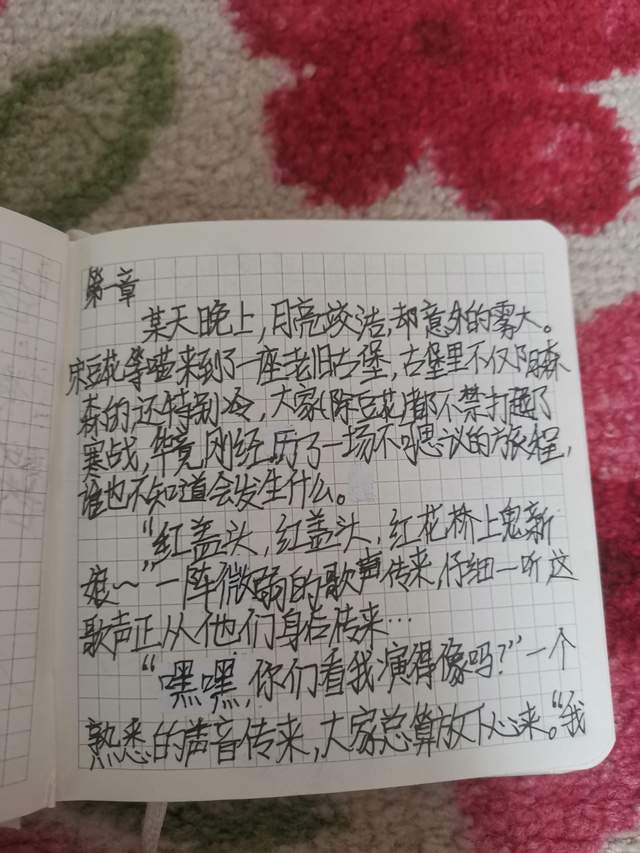 第一章
某天晚上,月亮皎洁,却意外的雾大。
宋豆花等喵来到了一座老旧古堡,古堡里不仅阴森
森的还特别冷,大家(除豆花)都不禁打起了
寒战,毕竟刚经历了一场不可思议的旅程,
谁也不知道会发生什么。
“红盖头,红盖头,红花桥上鬼新
娘~”一阵微弱的歌声传来,仔细一听这
歌声正从他们身后传来…
“嘿嘿,你们看我演得像吗?”一个
熟悉的声音传来,大家总算放下心来。“我